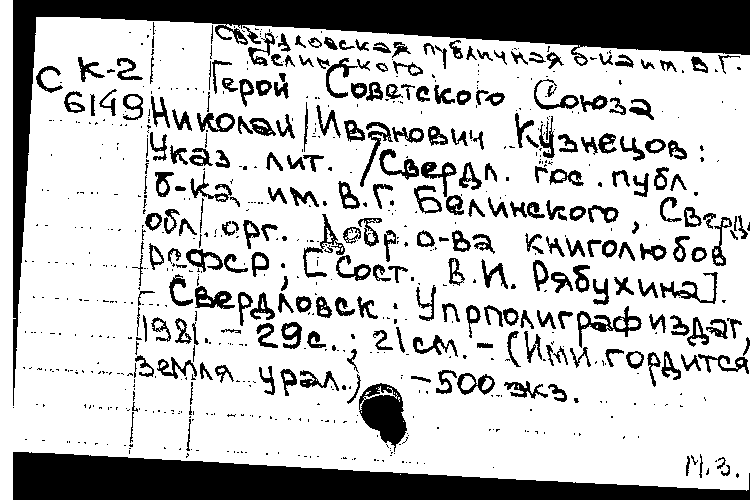 Свердловская публичная б-ка им. В.Г.
Белинского.
С К-2
6149
Герой Советского Союза
Николай Иванович Кузнецов:
Указ. лит. / Свердл. гос. публ.
б-ка им. В.Г. Белинского, Сверд
обл. орг. Добр. о-ва книголюбов
РСФСР; [Сост. В.И. Рябухина].
- Свердловск: Упрполиграфиздат,
1981. - 29с.; 21см. - (Ими гордится
земля урал.) - 500 экз.
М.З.